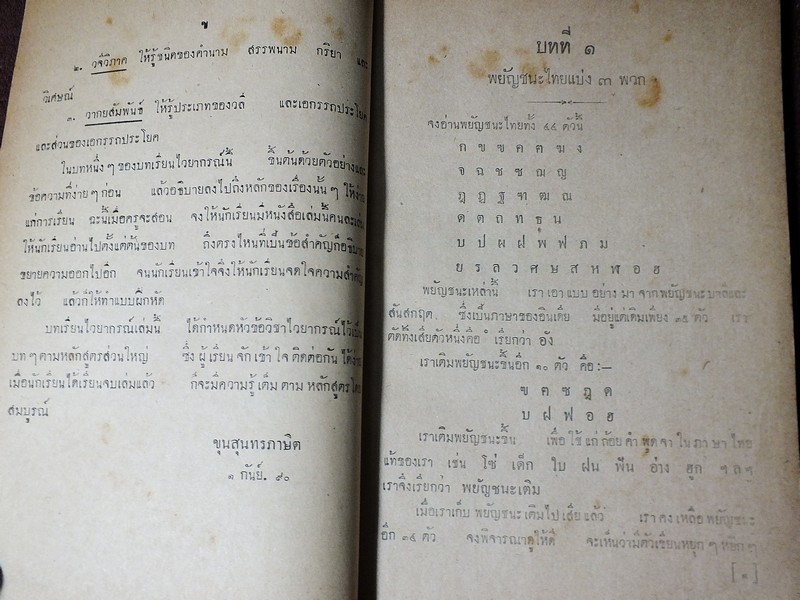 ข
๒. วจีวิภาค ให้รู้ชนิดของคำนาม สรรพนาม กริยา และ
วิเศษณ์
๓. วากยสัมพันธ์ ให้รู้ประเภทของวลี และเอกรรถประโยค
และส่วนของเอกรรถประโยค
ในบทหนึ่ง ๆ ของบทเรียนไวยากรณ์นี้ ขึ้นต้นด้วยตัวอย่างและ
ข้อความที่ง่าย ๆ ก่อน แล้วอธิบายลงไปถึงหลักของเรื่องนั้น ๆ ให้ง่าย
แก่การเรียน ฉะนี้เมื่อครูจะสอน จงให้นักเรียนมีหนังสือเล่มนี้คนละเล่ม
ให้นักเรียนอ่านไปตั้งแต่ต้นของบท ถึงตรงไหนที่เป็นข้อสำคัญก็อธิบาย
ขยายความออกไปอีก จนนักเรียนเข้าใจจึงให้นักเรียนจดใจความสำคัญ
ลงไว้ แล้วก็ให้ทำแบบฝึกหัด
บทเรียนไวยากรณ์เล่มนี้ ได้กำหนดหัวข้อวิชาไวยากรณ์ไว้เป็น
บท ๆ ตามหลักสูตรส่วนใหญ่ ซึ่งผู้เรียนจักเข้าใจติดต่อกันได้ง่าย
เมื่อนักเรียนได้เรียนจบเล่มแล้ว ก็จะมีความรู้เต็มตามหลักสูตรโดย
สมบูรณ์
ขุนสุนทรภาษิต
๑ กันย์. ๙๐
บทที่ ๑
พยัญชนะไทยแบ่ง ๓ พวก
จงอ่านพยัญชนะไทยทั้ง ๔๔ ตัวนี้
ก ข ฃ ค ฅ ฆ ง
จ ฉ ช ซ ฌ ญ
ฎ ฏ ฐ ฑ ฒ ณ
ด ต ถ ท ธ น
บ ป ผ ฝ พ ฟ ภ ม
ย ร ล ว ศ ษ ส ห ฬ อ ฮ
พยัญชนะเหล่านี้ เราเอาแบบอย่างมาจากพยัญชนะบาลีและ
สันสกฤต ซึ่งเป็นภาษาของอินเดีย มีอยู่แต่เดิมเพียง ๓๕ ตัว เรา
ตัดทิ้งเสียตัวหนึ่งคือ ํ เรียกว่า อัง
เราเติมพยัญชนะขึ้นอีก ๑๐ ตัว คือ:–
ฃ ฅ ซ ฎ ด
บ ฝ ฟ อ ฮ
เราเติมพยัญชนะขึ้น เพื่อใช้แก่ถ้อยคำพูดจาในภาษาไทย
แท้ของเรา เช่น โซ่ เด็ก ใบ ฝน ฟัน อ่าง ฮูก ฯลฯ
เราจึงเรียกว่า พยัญชนะเติม
เมื่อเราเก็บพยัญชนะเติมไปเสียแล้ว เราคงเหลือพยัญชนะ
อีก ๓๔ ตัว จงพิจารณาดูให้ดี จะเห็นว่ามีตัวเขียนหยุก ๆ หยิก ๆ
[ ๑ ]